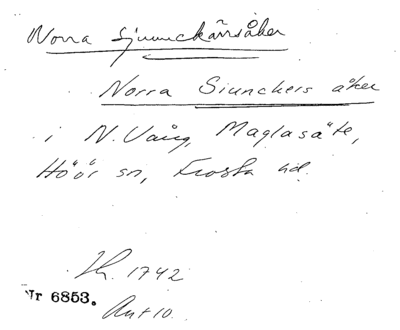 Norra Sjunckärrsåker
Norra Siunckers åker
i N. Vång, Maglasäte,
Höör sn, Frosta hd.
Lh. 1742
Nr 6853. Ant 10.